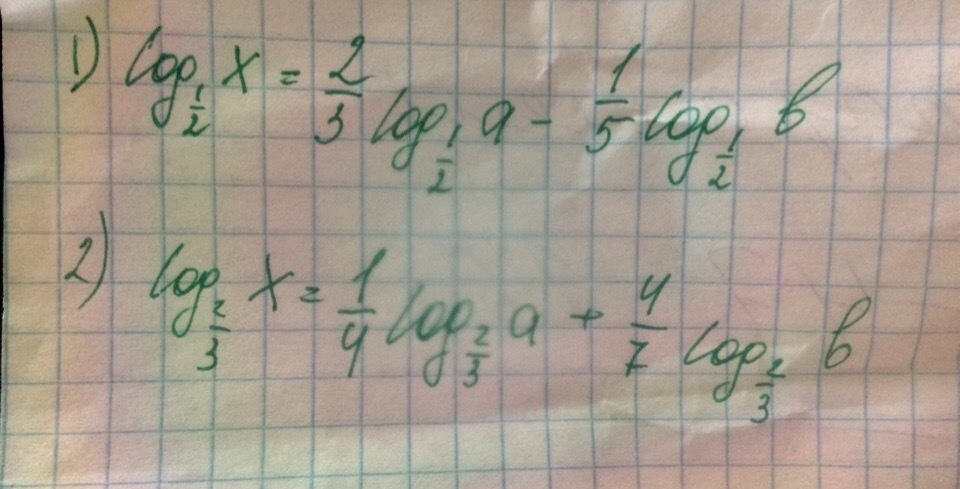 1) log_{1/2} x = 2/3 log_{1/2} a - 1/5 log_{1/2} b
2) log_{2/3} x = 1/4 log_{2/3} a + 4/7 log_{2/3} b